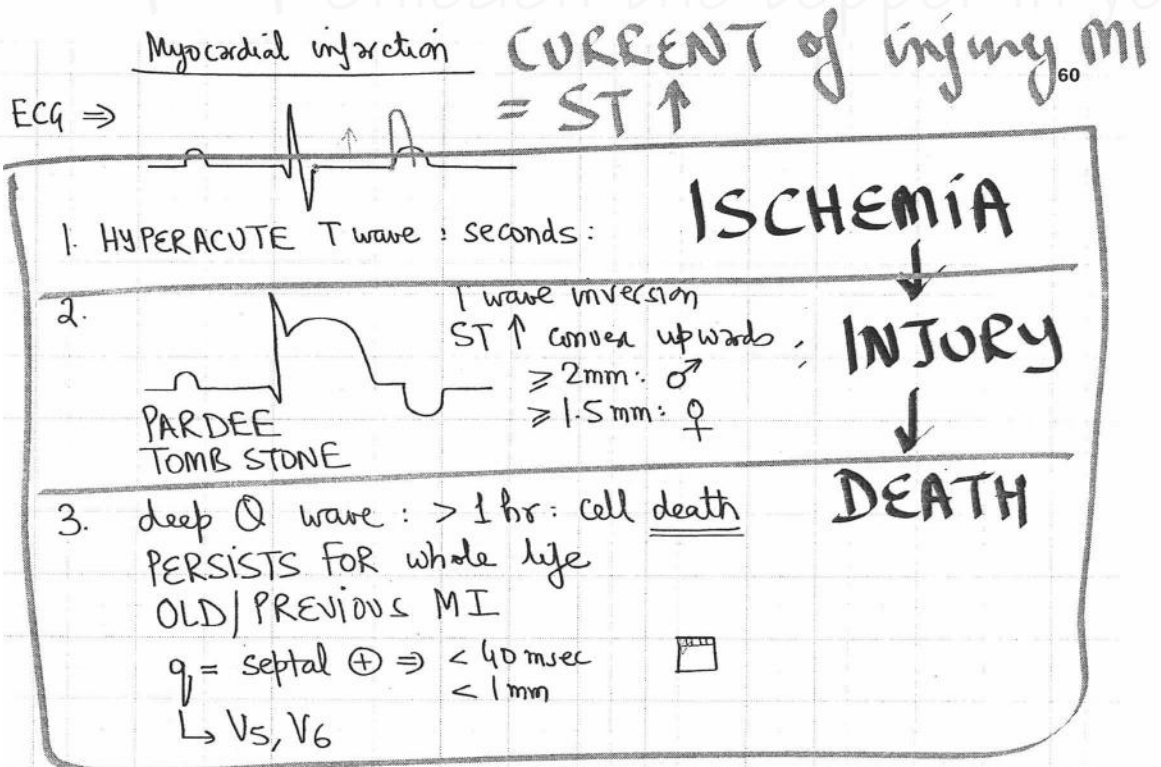 Myocardial infarction
CURRENT of injury MI
= ST ↑
60
ECG ⇒
1. HYPERACUTE T wave : seconds:
ISCHEMIA
↓
2.
T wave inversion
ST ↑ convex upwards ;
≥ 2mm: ♂
≥ 1.5 mm: ♀
INJURY
↓
PARDEE
TOMB STONE
3. deep Q wave : > 1 hr: cell death
DEATH
PERSISTS FOR whole life
OLD/PREVIOUS MI
q = septal ⊕ ⇒ < 40 msec
< 1 mm
↳ V5, V6